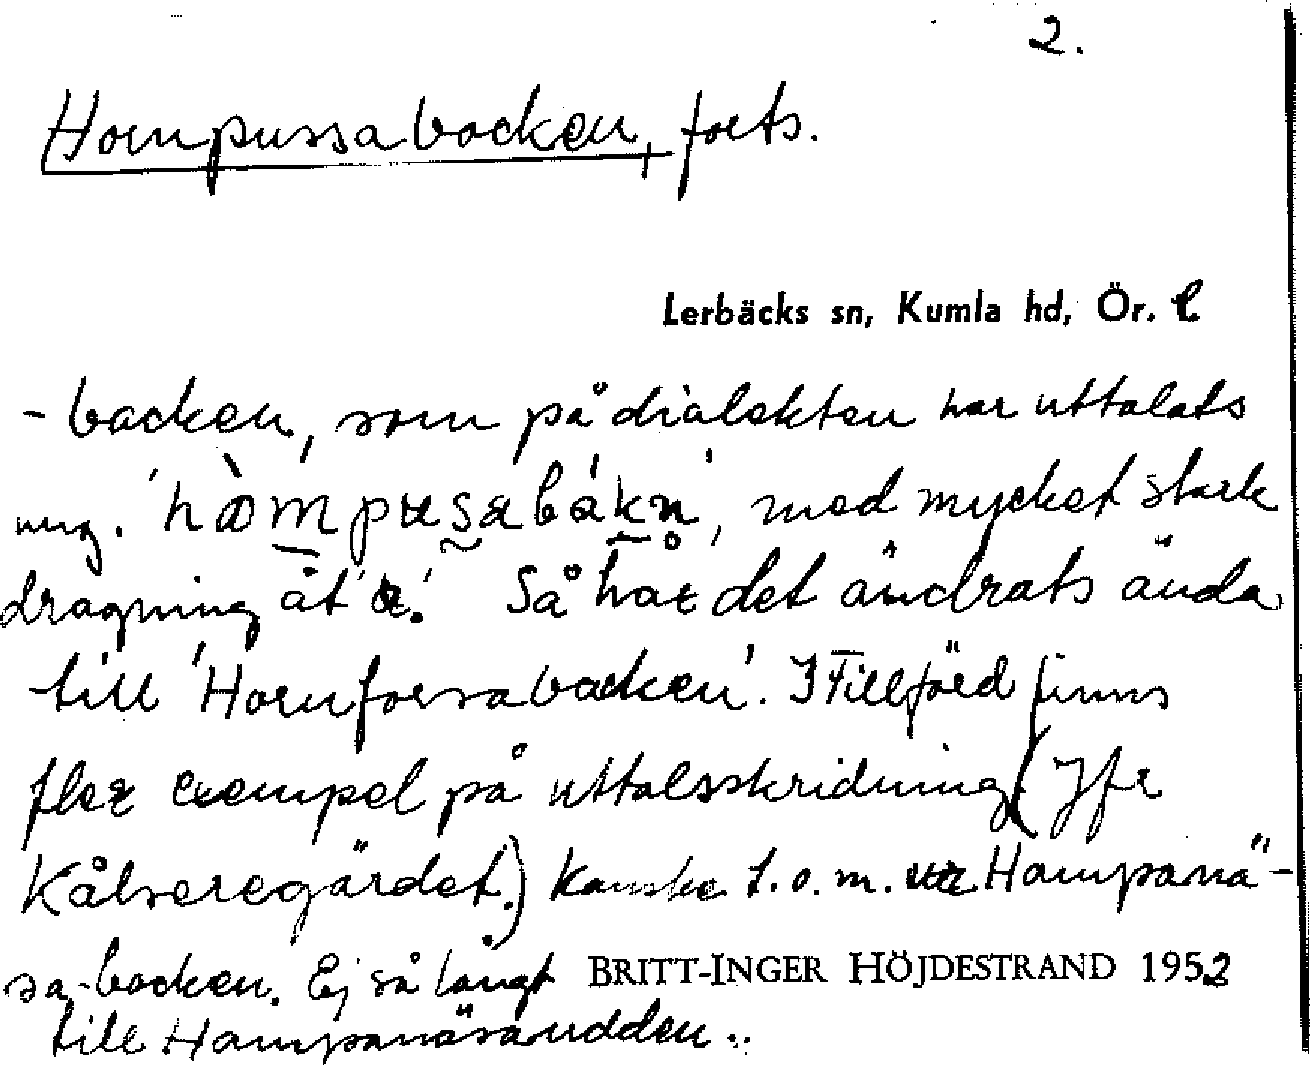 2.
Hornpussabacken, forts.
Lerbäcks sn, Kumla hd, Ör. l
-backen, som på dialekten har uttalats
ung. 'hòmpusabákn', med mycket stark
dragning åt a.' Så har det ändrats ända
till 'Hornforsabacken'. I Tillförd finns
fler exempel på uttalsskridning (Jfr
Kålveregärdet.) Kanske t.o.m. Hampanä-
sa-backen. Ej så långt BRITT-INGER HÖJDESTRAND 1952
till Hampanäsaudden..